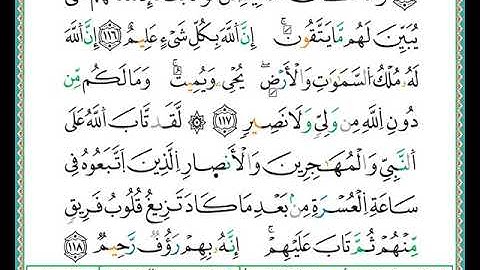 يُبَيِّنَ لَهُم مَّا يَتَّقُونَ ۚ إِنَّ ٱللَّهَ بِكُلِّ شَىْءٍ عَلِيمٌ ﴿١١٦﴾ إِنَّ ٱللَّهَ
لَهُۥ مُلْكُ ٱلسَّمَٰوَٰتِ وَٱلْأَرْضِ ۖ يُحْىِۦ وَيُمِيتُ ۚ وَمَا لَكُم مِّن
دُونِ ٱللَّهِ مِن وَلِىٍّ وَلَا نَصِيرٍ ﴿١١٧﴾ ۞ لَّقَد تَّابَ ٱللَّهُ عَلَى
ٱلنَّبِىِّ وَٱلْمُهَٰجِرِينَ وَٱلْأَنصَارِ ٱلَّذِينَ ٱتَّبَعُوهُ فِى
سَاعَةِ ٱلْعُسْرَةِ مِنۢ بَعْدِ مَا كَادَ تَزِيغُ قُلُوبُ فَرِيقٍ
مِّنْهُمْ ثُمَّ تَابَ عَلَيْهِمْ ۚ إِنَّهُۥ بِهِمْ رَءُوفٌ رَّحِيمٌ ﴿١١٨﴾